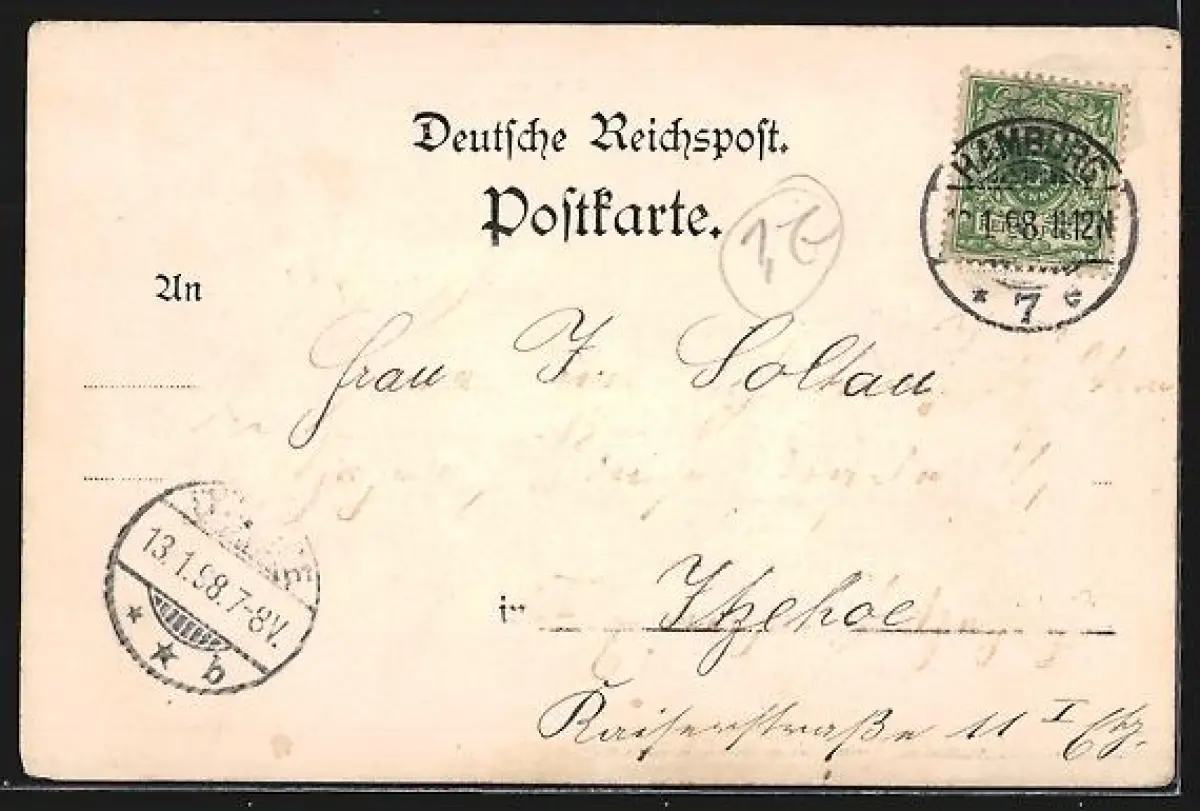 Deutsche Reichspost.
Postkarte.
HAMBURG
1.98.11-12N
* 7 c
An
Frau J. Soltau
13.1.98.7-8V.
* * b
in Itzehoe
Kaiserstraße 11 I